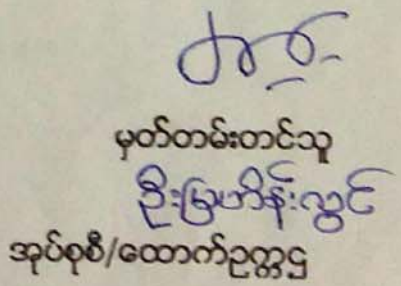 မှတ်တမ်းတင်သူ
ဦးမြဟိန်းလွင်
အုပ်စုစီ/ထောက်ဥက္ကဌ